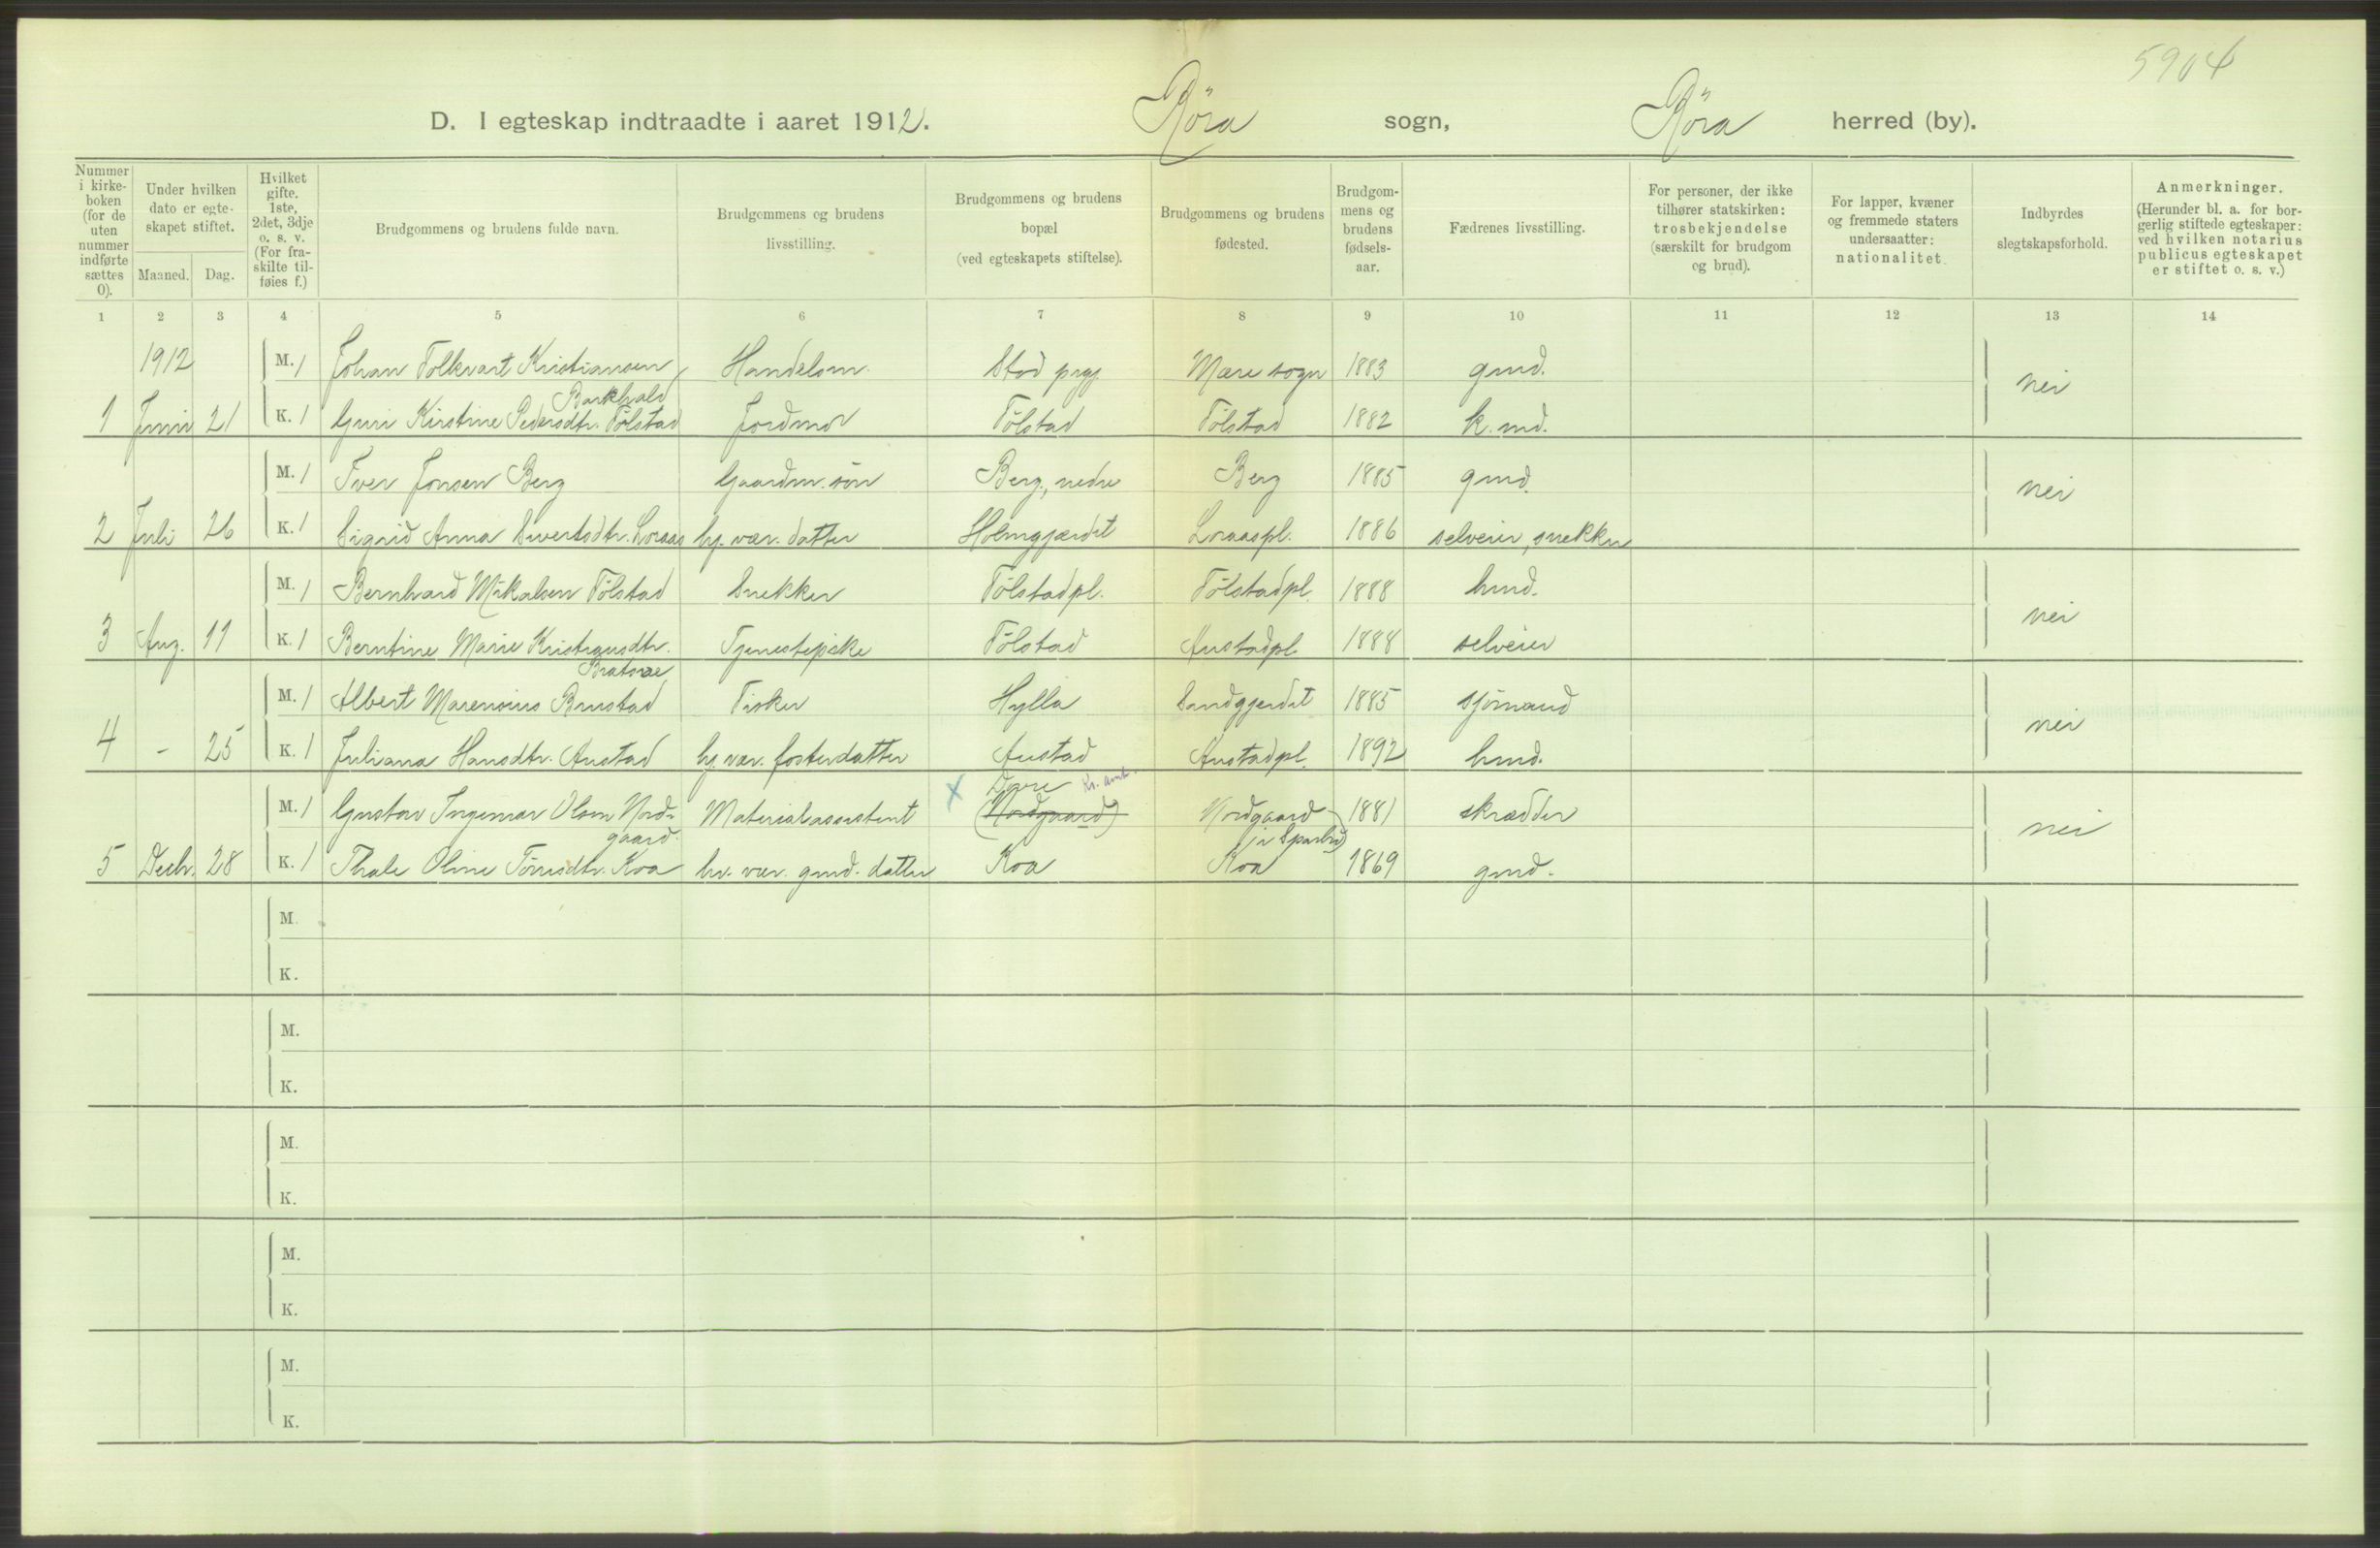 5904
D. I egteskap indtraadte i aaret 1912. Röra sogn, Röra herred (by).
Nummer i kirke- boken (for de uten nummer indførte sættes 0).
Under hvilken dato er egte- skapet stiftet.
Maaned. Dag.
Hvilket gifte. 1ste, 2det, 3dje o. s. v. (For fra- skilte til- føies f.)
Brudgommens og brudens fulde navn.
Brudgommens og brudens livsstilling.
Brudgommens og brudens bopæl (ved egteskapets stiftelse).
Brudgommens og brudens fødested.
Brudgom- mens og brudens fødsels- aar.
Fædrenes livsstilling.
For personer, der ikke tilhører statskirken: trosbekjendelse (særskilt for brudgom og brud).
For lapper, kvæner og fremmede staters undersaatter: nationalitet.
Indbyrdes slegtskapsforhold.
Anmerkninger. (Herunder bl. a. for bor- gerlig stiftede egteskaper: ved hvilken notarius publicus egteskapet er stiftet o. s. v.)
1 2 3 4 5 6 7 8 9 10 11 12 13 14
1912 M. 1 Johan Tolkvart Kristiansen Handelsm. Stod prgj. Mære sogn 1883 gmd. nei
Barkhald
1 Juni 21 K. 1 Guri Kirstine Pedersdtr. Tölstad Jordmor Tölstad Tölstad 1882 k. md.
M. 1 Iver Jonsen Berg Gaardm. sön Berg, nedre Berg 1885 gmd. nei
2 Juli 26 K. 1 Sigrid Anna Sivertsdtr. Loraas hj. vær. datter Holmgjærdet Loraaspl. 1886 selveier, snekker
M. 1 Bernhard Mikalsen Tölstad Snekker Tölstadpl. Tölstadpl. 1888 hmd. nei
3 Aug. 11 K. 1 Berntine Marie Kristiansdtr. Tjenestepike Tölstad Austadpl. 1888 selveier
Bratsve
M. 1 Albert Marensius Brustad Fisker Hylla Sandgjerdet 1885 sjömand nei
4 - 25 K. 1 Juliana Hansdtr. Austad hj. vær. fosterdatter Austad Austadpl. 1892 hmd.
X Dovre Kr. amt.
M. 1 Gustav Ingemar Olsen Nord- Materialassistent (Nordgaard) Nordgaard 1881 skrædder nei
gaard. i Sparbu)
5 Decbr. 28 K. 1 Thale Oline Törrisdtr. Koa hj. vær. gmd. datter Koa Koa 1869 gmd.
M.
K.
M.
K.
M.
K.
M.
K.
M.
K.